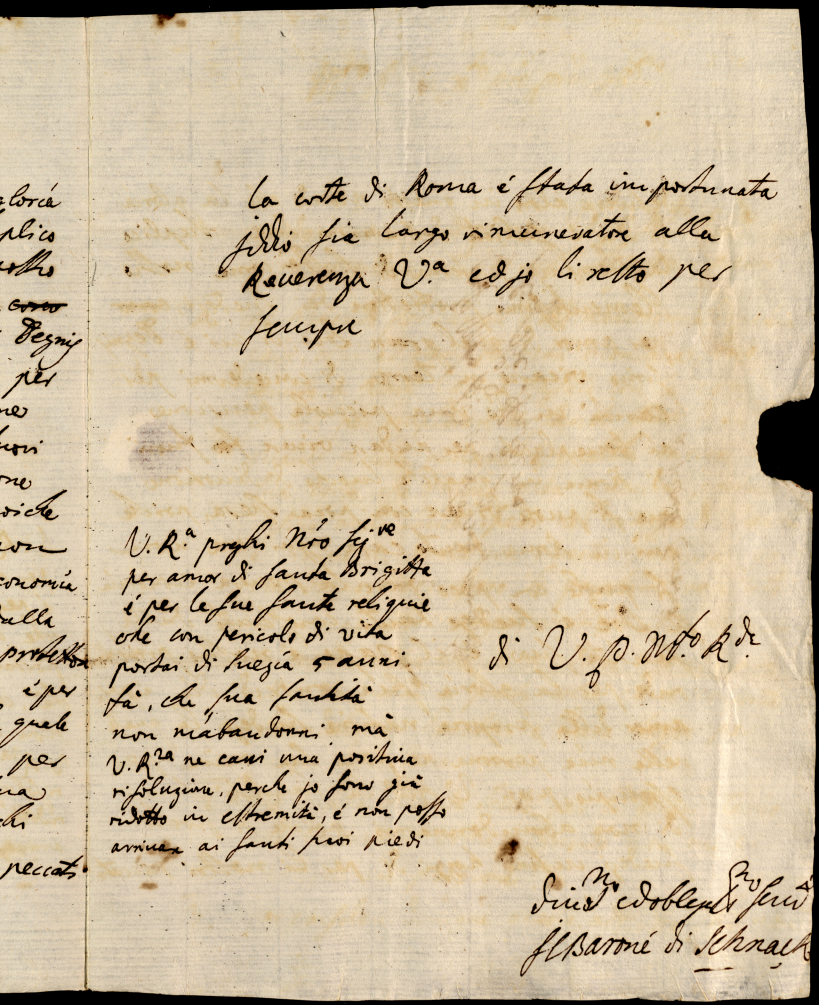 gloria
plico
nostro
corso
Degnis
per
ne
suoi
one
viche
non
conomia
dalla
protettor
é per
quale
per
na
chi
peccati
la corte di Roma é stata importunata
jddio sia largo rimuneratore alla
Reuerenza V.a ed jo li resto per
sempre
V. R.a preghi Nr̃o Sig.re
per amor di Santa Brigitta
é per le sue sante reliquie
che con pericolo di vita
portai di Suezia 5 anni
fà, che sua santità
non m'abandonni mà
V. R.za ne caui una positiua
risoluzione, perche jo sono già
ridotto in estremità, é non posso
arriuar ai santi suoi piedi
di V. P. R.da
diuot.mo ed oblig.mo seru
jl Baroné di Schnack